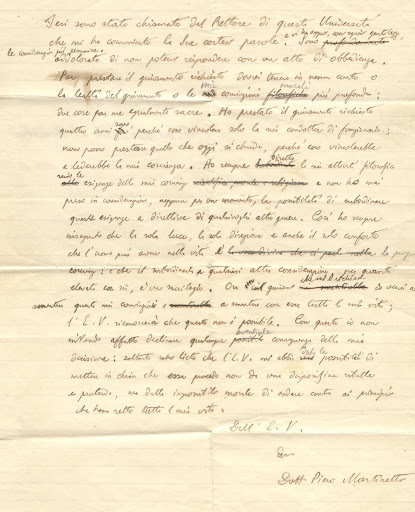 Ieri sono stato chiamato dal Rettore di questa Università
che mi ha comunicato le Sue cortesi parole, e vi ha esposto, con ogni gentilezza,
le considerazioni più persuasive. Sono profondamente
addolorato di non poter rispondere con un atto di obbedienza.
Per prestare il giuramento richiesto dovrei tenere in nessun conto o
la lealtà del giuramento o le mie convinzioni filosofiche morali più profonde:
due cose per me egualmente sacre. Ho prestato il giuramento richiesto
quattro anni sono perché esso vincolava solo la mia condotta di funzionario:
non posso prestare quello che oggi mi si chiede, perché esso vincolerebbe
e lederebbe la mia coscienza. Ho sempre diretto la mia attività filosofica
secondo le esigenze della mia coscienza scientifica, morale e religiosa e non ho mai
preso in considerazione, neppure per un momento, la possibilità di subordinare
queste esigenze a direttive di qualsivoglia altro genere. Così ho sempre
insegnato che la sola luce, la sola direzione e anche il solo conforto
che l'uomo può avere nella vita è la propria
coscienza: e che il subordinarla a qualsiasi altra considerazione, per quanto
elevata essa sia, è un sacrilegio. Ora col giuramento che mi è richiesto io verrei a
smentire queste mie convinzioni e a smentire con esse tutta la mia vita;
l'E. V. riconoscerà che questo non è possibile. Con questo io non
intendo affatto declinare qualunque eventuale conseguenza della mia
decisione: soltanto sono lieto che l'E. V. mi abbia dato la possibilità di
mettere in chiaro che essa procede non da una disposizione ribelle
e proterva, ma dalla impossibilità morale di andare contro ai principii
che hanno retto tutta la mia vita.
Dell'E. V.
dev
Dott Piero Martinetti